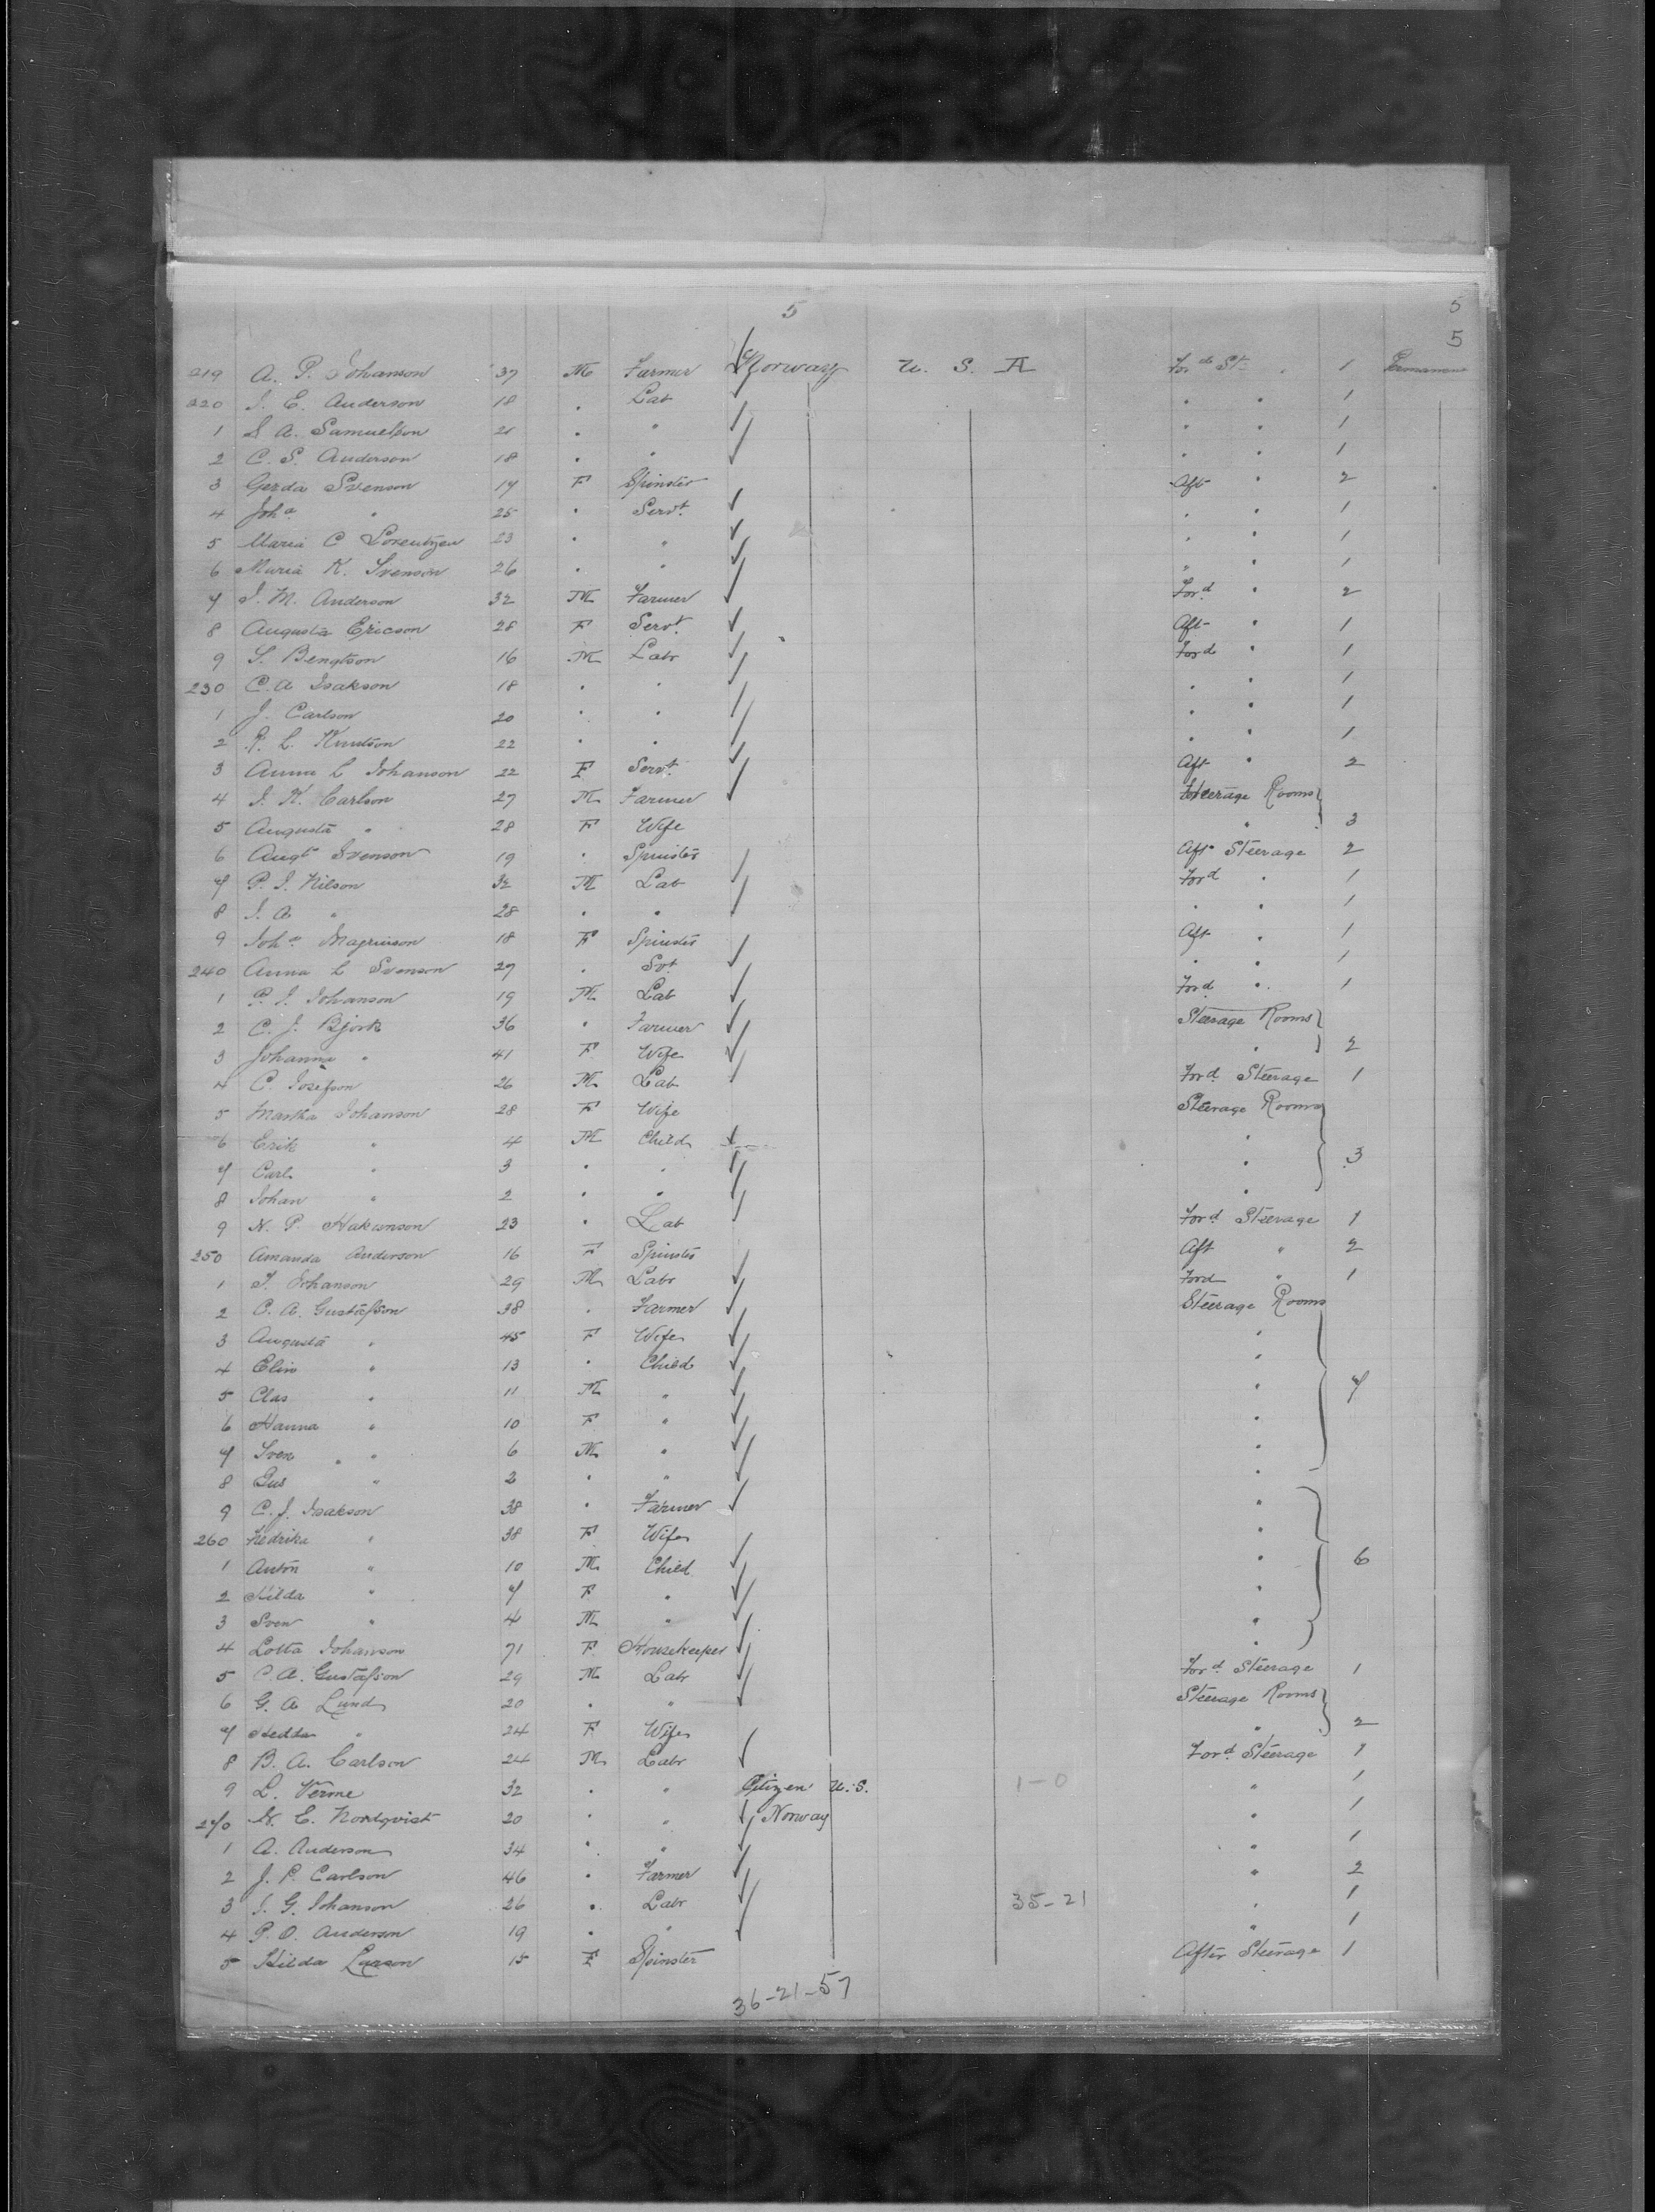 5 5
5
219 A. P. Johanson 37 M Farmer Norway U. S. A Ford St. 1 Permanent
220 J. E. Anderson 18 . Lab " " 1
1 S A. Samuelson 21 . " " " 1
2 C. S. Anderson 18 . " " " 1
3 Gerda Svenson 17 F Spinster Aft " 2
4 Joha " 25 . Servt " " 1
5 Maria C Lorentzen 23 . " " " 1
6 Maria K. Svenson 26 . " " " 1
7 J. M. Anderson 32 M Farmer Ford " 2
8 Augusta Ericson 28 F Servt Aft " 1
9 S. Bengtson 16 M Labr Ford " 1
230 C. A Isakson 18 . " " " 1
1 J. Carlson 20 . " " " 1
2 P. L. Knutson 22 . " " " 1
3 Anna L Johanson 22 F Servt Aft " 2
4 J. K. Carlson 27 M Farmer Steerage Rooms
5 Augusta " 28 F Wife " 3
6 Augta Svenson 19 . Spinster Aft Steerage 2
7 P. J. Nilson 32 M Lab Ford " 1
8 J. A " 28 . " " " 1
9 Joha Magnuson 18 F Spinster Aft " 1
240 Anna L Svenson 27 . Svt " " 1
1 P. J. Johanson 19 M Lab Ford " 1
2 C. J. Bjork 36 " Farmer Steerage Rooms
3 Johanna " 41 F Wife " 2
4 C. Josefson 26 M Lab Ford Steerage 1
5 Martha Johanson 28 F Wife Steerage Rooms
6 Erik " 4 M Child "
7 Carl " 3 . " " 3
8 Johan " 2 . " "
9 N. P. Hakanson 23 . Lab Ford Steerage 1
250 Amanda Anderson 16 F Spinster Aft " 2
1 J. Johanson 29 M Labr Ford " 1
2 C. A. Gustafson 38 . Farmer Steerage Rooms
3 Augusta " 45 F Wife "
4 Elin " 13 . Child "
5 Clas " 11 M " " 7
6 Hanna " 10 F " "
7 Sven " 6 M " "
8 Gus " 2 . " "
9 C. J. Isakson 38 . Farmer "
260 Fredrika " 38 F Wife "
1 Anton " 10 M Child " 6
2 Hilda " 7 F " "
3 Sven " 4 M " "
4 Lotta Johanson 71 F Housekeeper "
5 C. A. Gustafson 29 M Labr Ford Steerage 1
6 G. A Lund 20 . " Steerage Rooms
7 Hedda " 24 F Wife " 2
8 B. A. Carlson 24 M Labr Ford Steerage 1
9 L. Verme 32 . " Citizen U.S. 1-0 " 1
270 N. E. Nordqvist 20 . " Norway " 1
1 A. Anderson 34 . " " 1
2 J. P. Carlson 46 . Farmer " 2
3 J. G. Johanson 26 . Labr 35-21 " 1
4 P. O. Anderson 19 . " " 1
5 Hilda Larson 15 F Spinster After Steerage 1
36-21-57